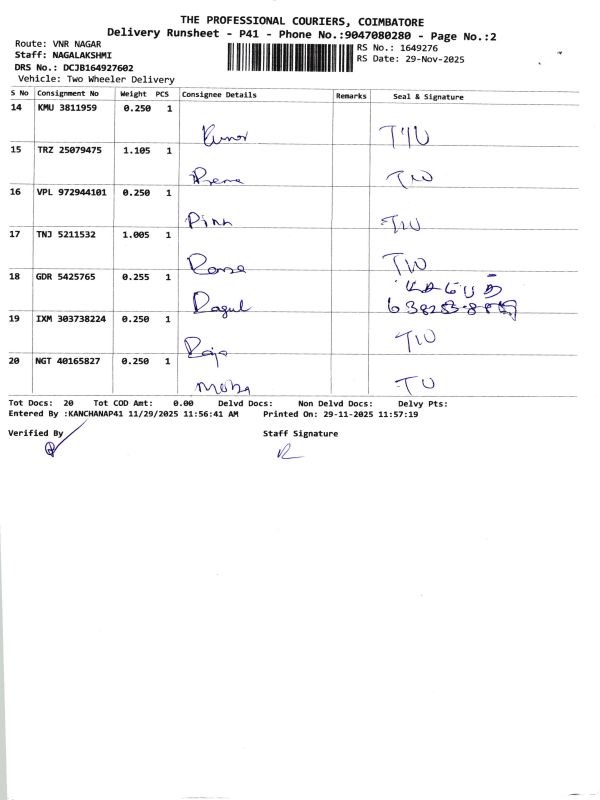 THE PROFESSIONAL COURIERS, COIMBATORE
Delivery Runsheet - P41 - Phone No.:9047080280 - Page No.:2
Route: VNR NAGAR
Staff: NAGALAKSHMI
DRS No.: DCJB164927602
Vehicle: Two Wheeler Delivery
RS No.: 1649276
RS Date: 29-Nov-2025
S No Consignment No Weight PCS Consignee Details Remarks Seal & Signature
14 KMU 3811959 0.250 1
Kumar
15 TRZ 25079475 1.105 1
16 VPL 972944101 0.250 1
17 TNJ 5211532 1.005 1
18 GDR 5425765 0.255 1
Ragul
19 IXM 303738224 0.250 1
Raja
20 NGT 40165827 0.250 1
Tot Docs: 20 Tot COD Amt: 0.00 Delvd Docs: Non Delvd Docs: Delvy Pts:
Entered By :KANCHANAP41 11/29/2025 11:56:41 AM Printed On: 29-11-2025 11:57:19
Verified By Staff Signature